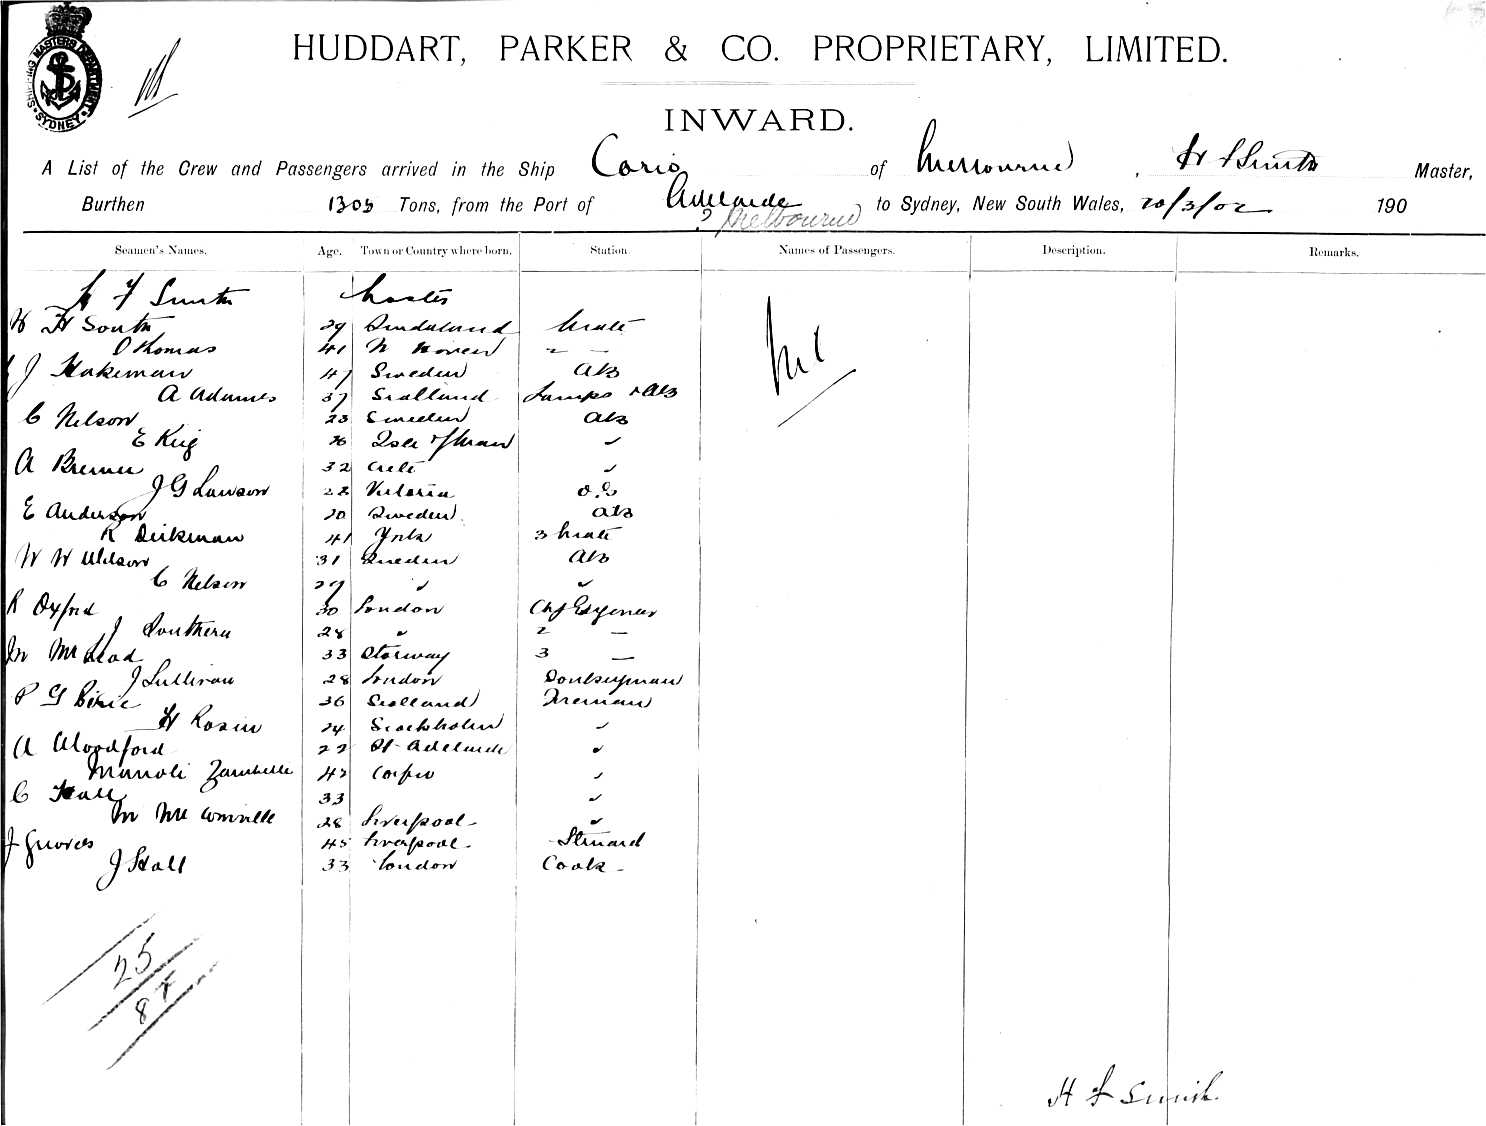 SHIPPING MASTERS DEPARTMENT SYDNEY
HUDDART, PARKER & CO. PROPRIETARY, LIMITED.
INWARD.
A List of the Crew and Passengers arrived in the Ship Corio of Melbourne, H F Smith Master,
Burthen 1303 Tons, from the Port of Adelaide to Sydney, New South Wales, 20/3/02 190
? Melbourne
Seamen's Names. Age. Town or Country where born. Station. Names of Passengers. Description. Remarks.
H F Smith Master
W H South 29 Sunderland Mate
O Thomas 41 N 2 —
J Hakeman 47 Sweden AB
A Adames 37 Scotland Lamps & AB
C Nelson 23 Sweden AB
E Keig 26 Isle of Man "
A Bremer 32 "
J G Lawson 22 Victoria O.S
E Anderson 20 Sweden AB
R Dickman 41 York 3 Mate
W W Wilson 31 Sweden AB
C Nelson 27 " "
R Oxford 30 London Chf Engineer
J Southern 28 " 2 —
M McLeod 33 Storway 3 —
J Sullivan 28 London Donkeyman
P G Birie 36 Scotland Fireman
H Rosin 24 Stockholm "
A Woodford 22 Pt Adelaide "
Manoli Zambelle 42 Corfu "
C Hall 33 "
M 28 Liverpool "
J Groves 45 Liverpool Steward
J Hall 33 London Cook
Nil
25
84
H F Smith